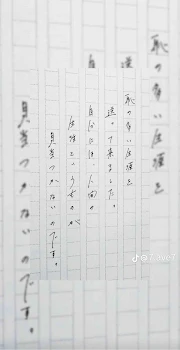 恥の多い生涯を
送
自
恥の多い生涯を
送って来ました。
自分には、人間の
生活というものが
見当つかないのです。
見当つかないのです。